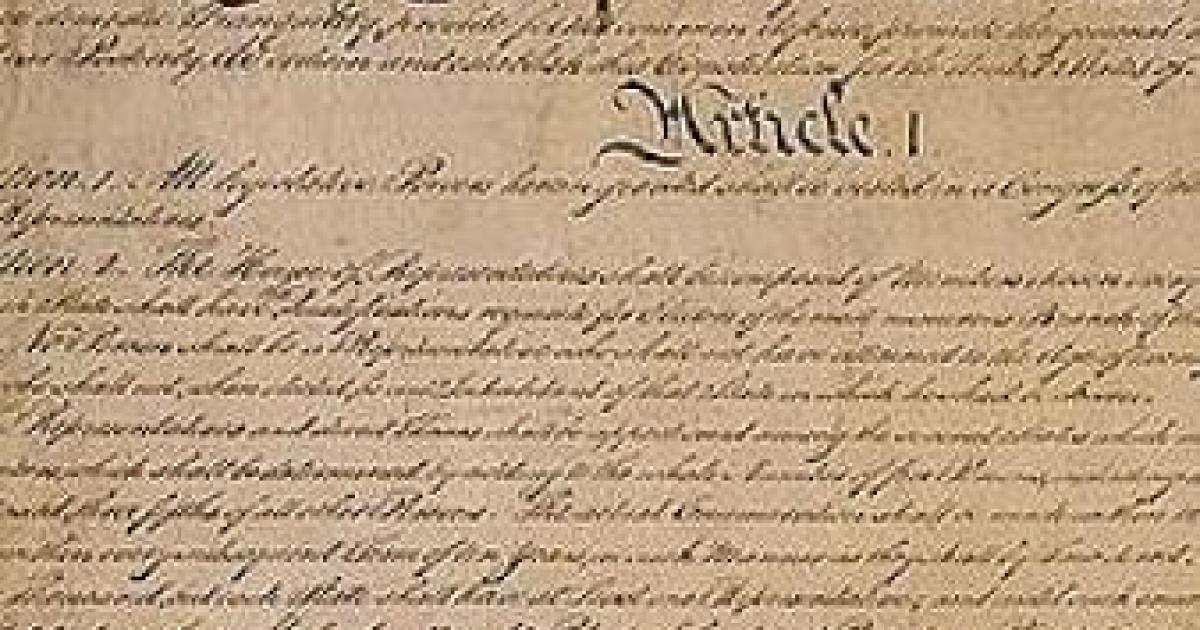 domestic Tranquility, provide for the common defence, promote the general
and our Posterity, do ordain and establish this Constitution for the United States of
Article. I.
Section. 1. All legislative Powers herein granted shall be vested in a Congress of the
Representatives.
Section. 2. The House of Representatives shall be composed of Members chosen every
in each State shall have Qualifications requisite for Electors of the most numerous Branch of the
No Person shall be a Representative who shall not have attained to the Age of twenty
who shall not, when elected, be an Inhabitant of that State in which he shall be chosen.
Representatives and direct Taxes shall be apportioned among the several States which
which shall be determined by adding to the whole Number of free Persons, including
three fifths of all other Persons. The actual Enumeration shall be made within
within every subsequent Term of ten Years, in such Manner as they shall by Law direct.
Thousand, but each State shall have at Least one Representative; and until such